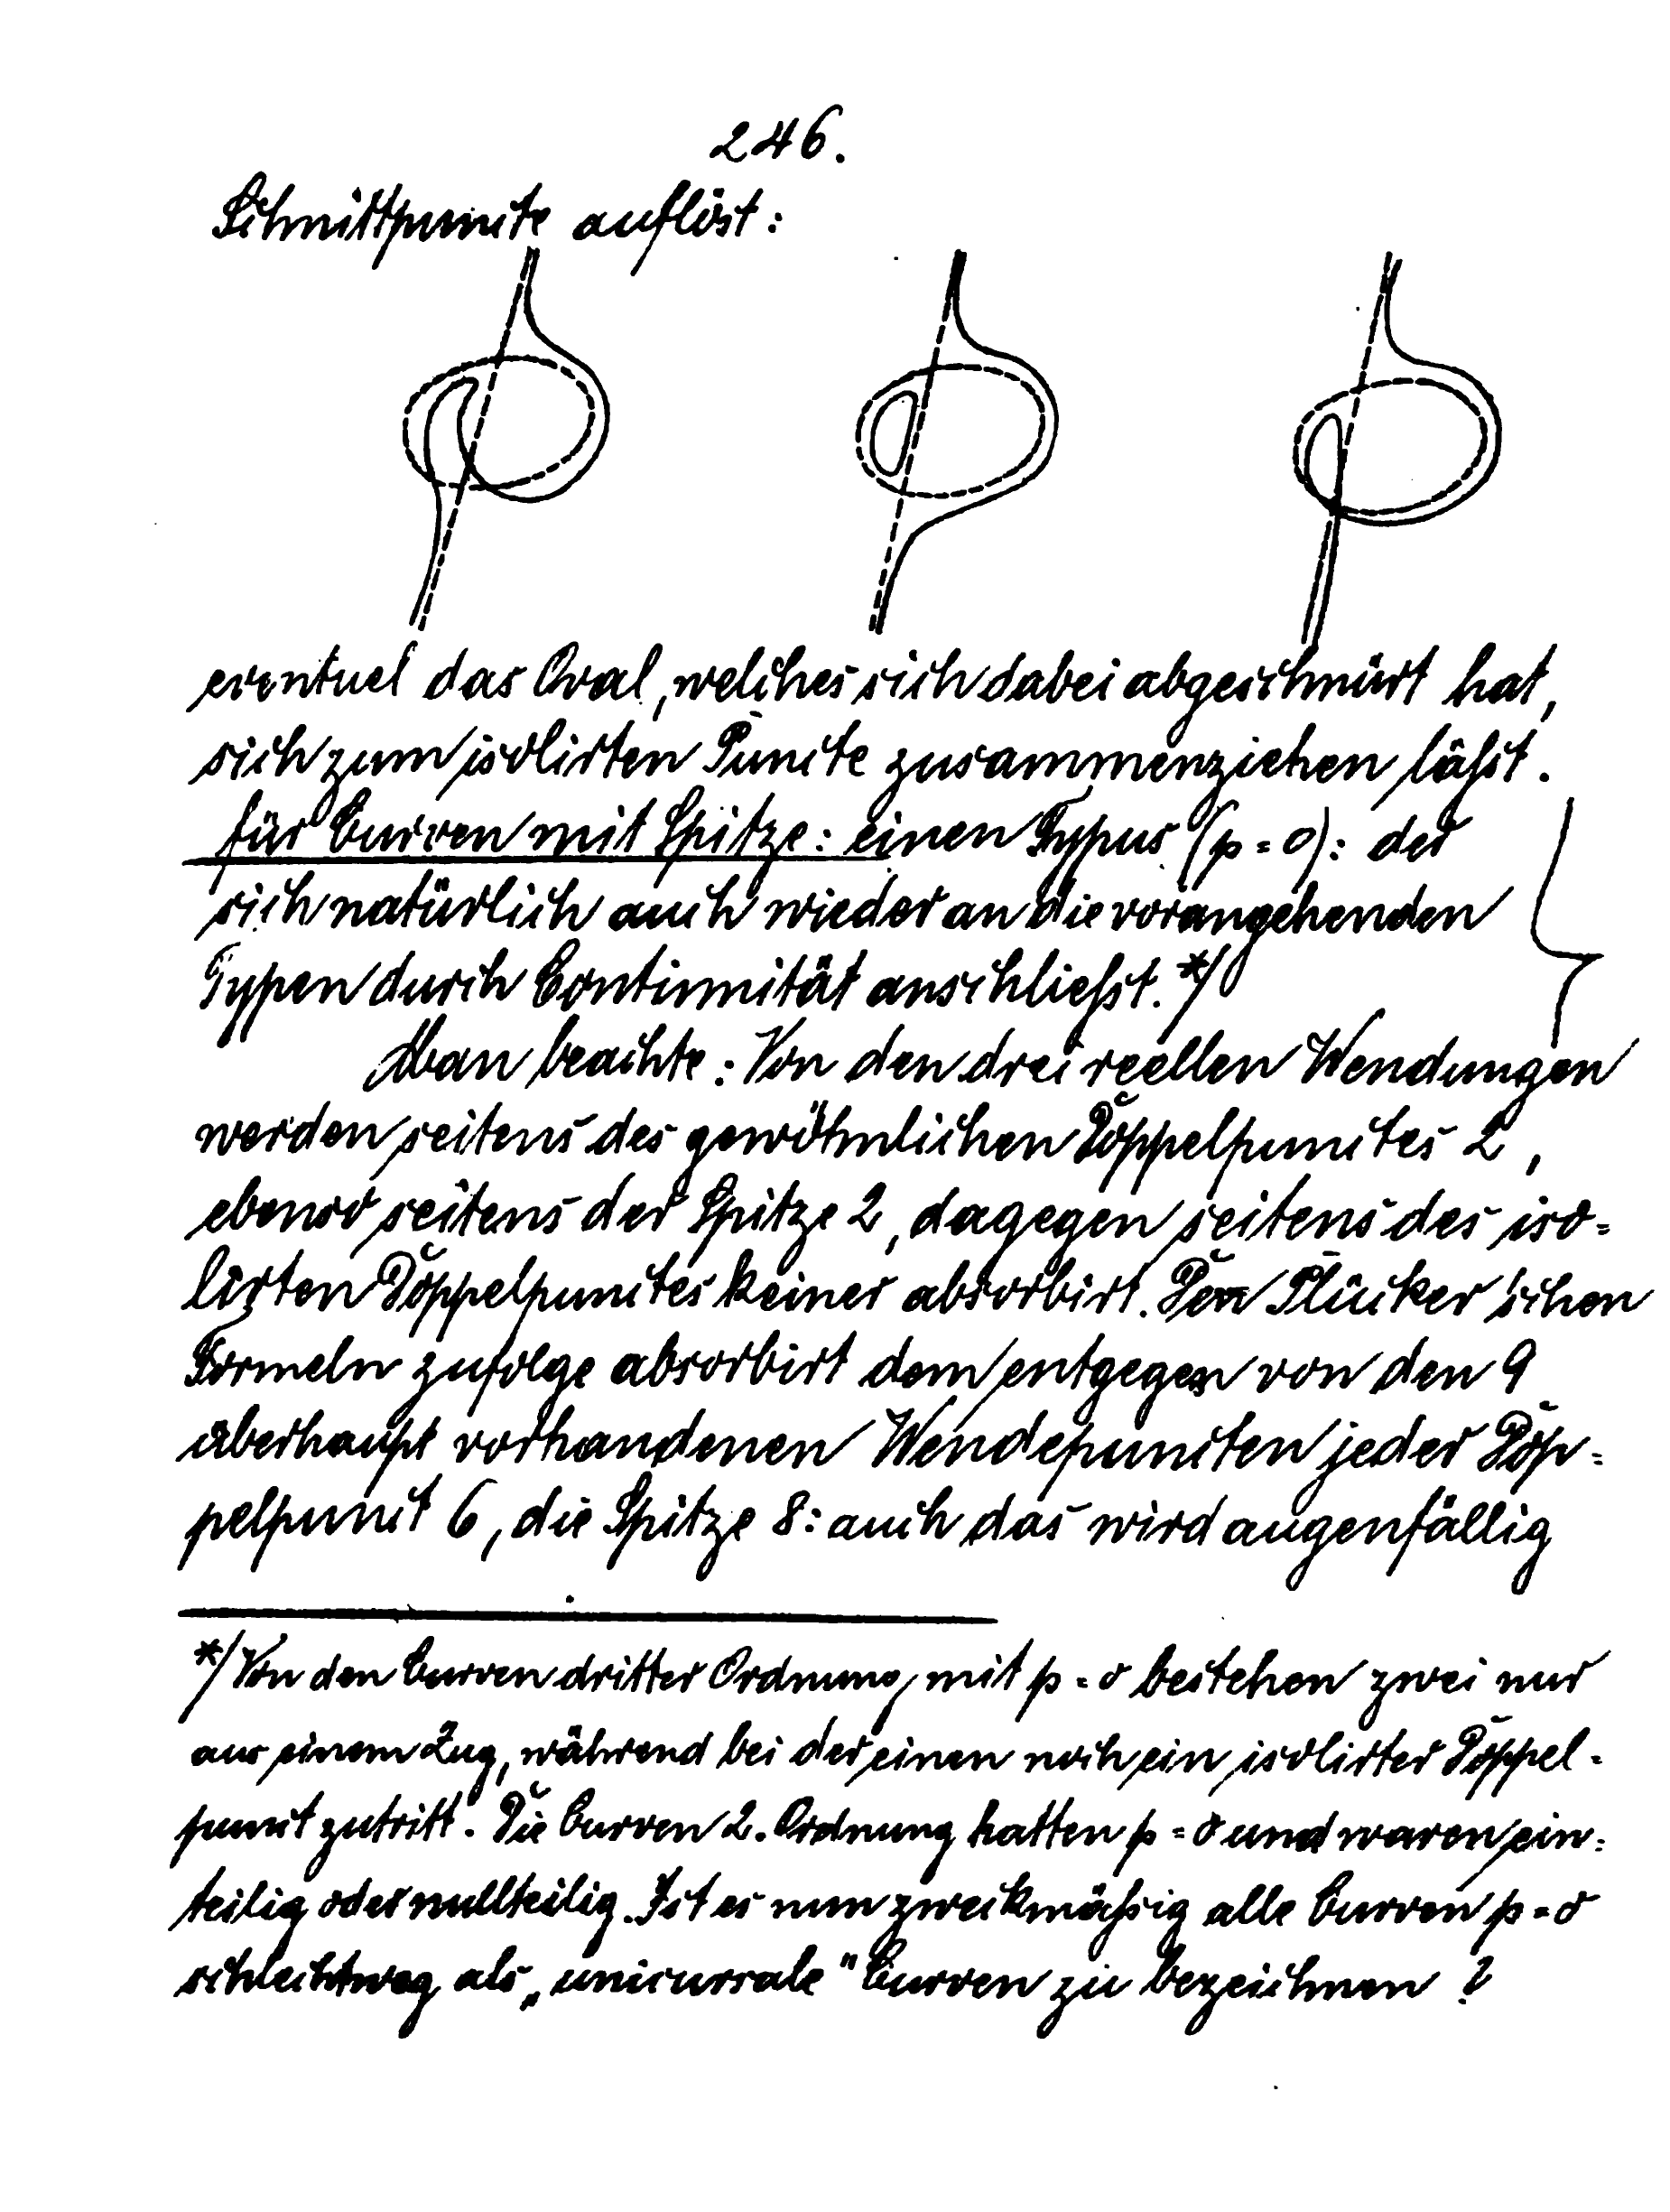 246.
Schnittpuncte auflöst:
eventuel das Oval, welches sich dabei abgeschnürt hat,
sich zum isolirten Puncte zusammenziehen läßt.
für Curven mit Spitze: einen Typus (p = 0): der
sich natürlich auch wieder an die vorangehenden
Typen durch Continuität anschließt. */
Man beachte: Von den drei reellen Wendungen
werden seitens des gewöhnlichen Doppelpunctes 2,
ebenso seitens der Spitze 2, dagegen seitens des iso=
lirten Doppelpunctes keiner absorbirt. Den Plücker'schen
Formeln zufolge absorbirt dem entgegen von den 9
überhaupt vorhandenen Wendepuncten jeder Dop=
pelpunct 6, die Spitze 8: auch das wird augenfällig
*/ Von den Curven dritter Ordnung, mit p = 0 bestehen zwei nur
aus einem Zug, während bei der einen noch ein isolirter Doppel=
punct zutritt. Die Curven 2. Ordnung hatten p = 0 und waren ein=
teilig oder nullteilig. Ist es nun zweckmäßig alle Curven p = 0
schlechtweg als „unicursale" Curven zu bezeichnen?